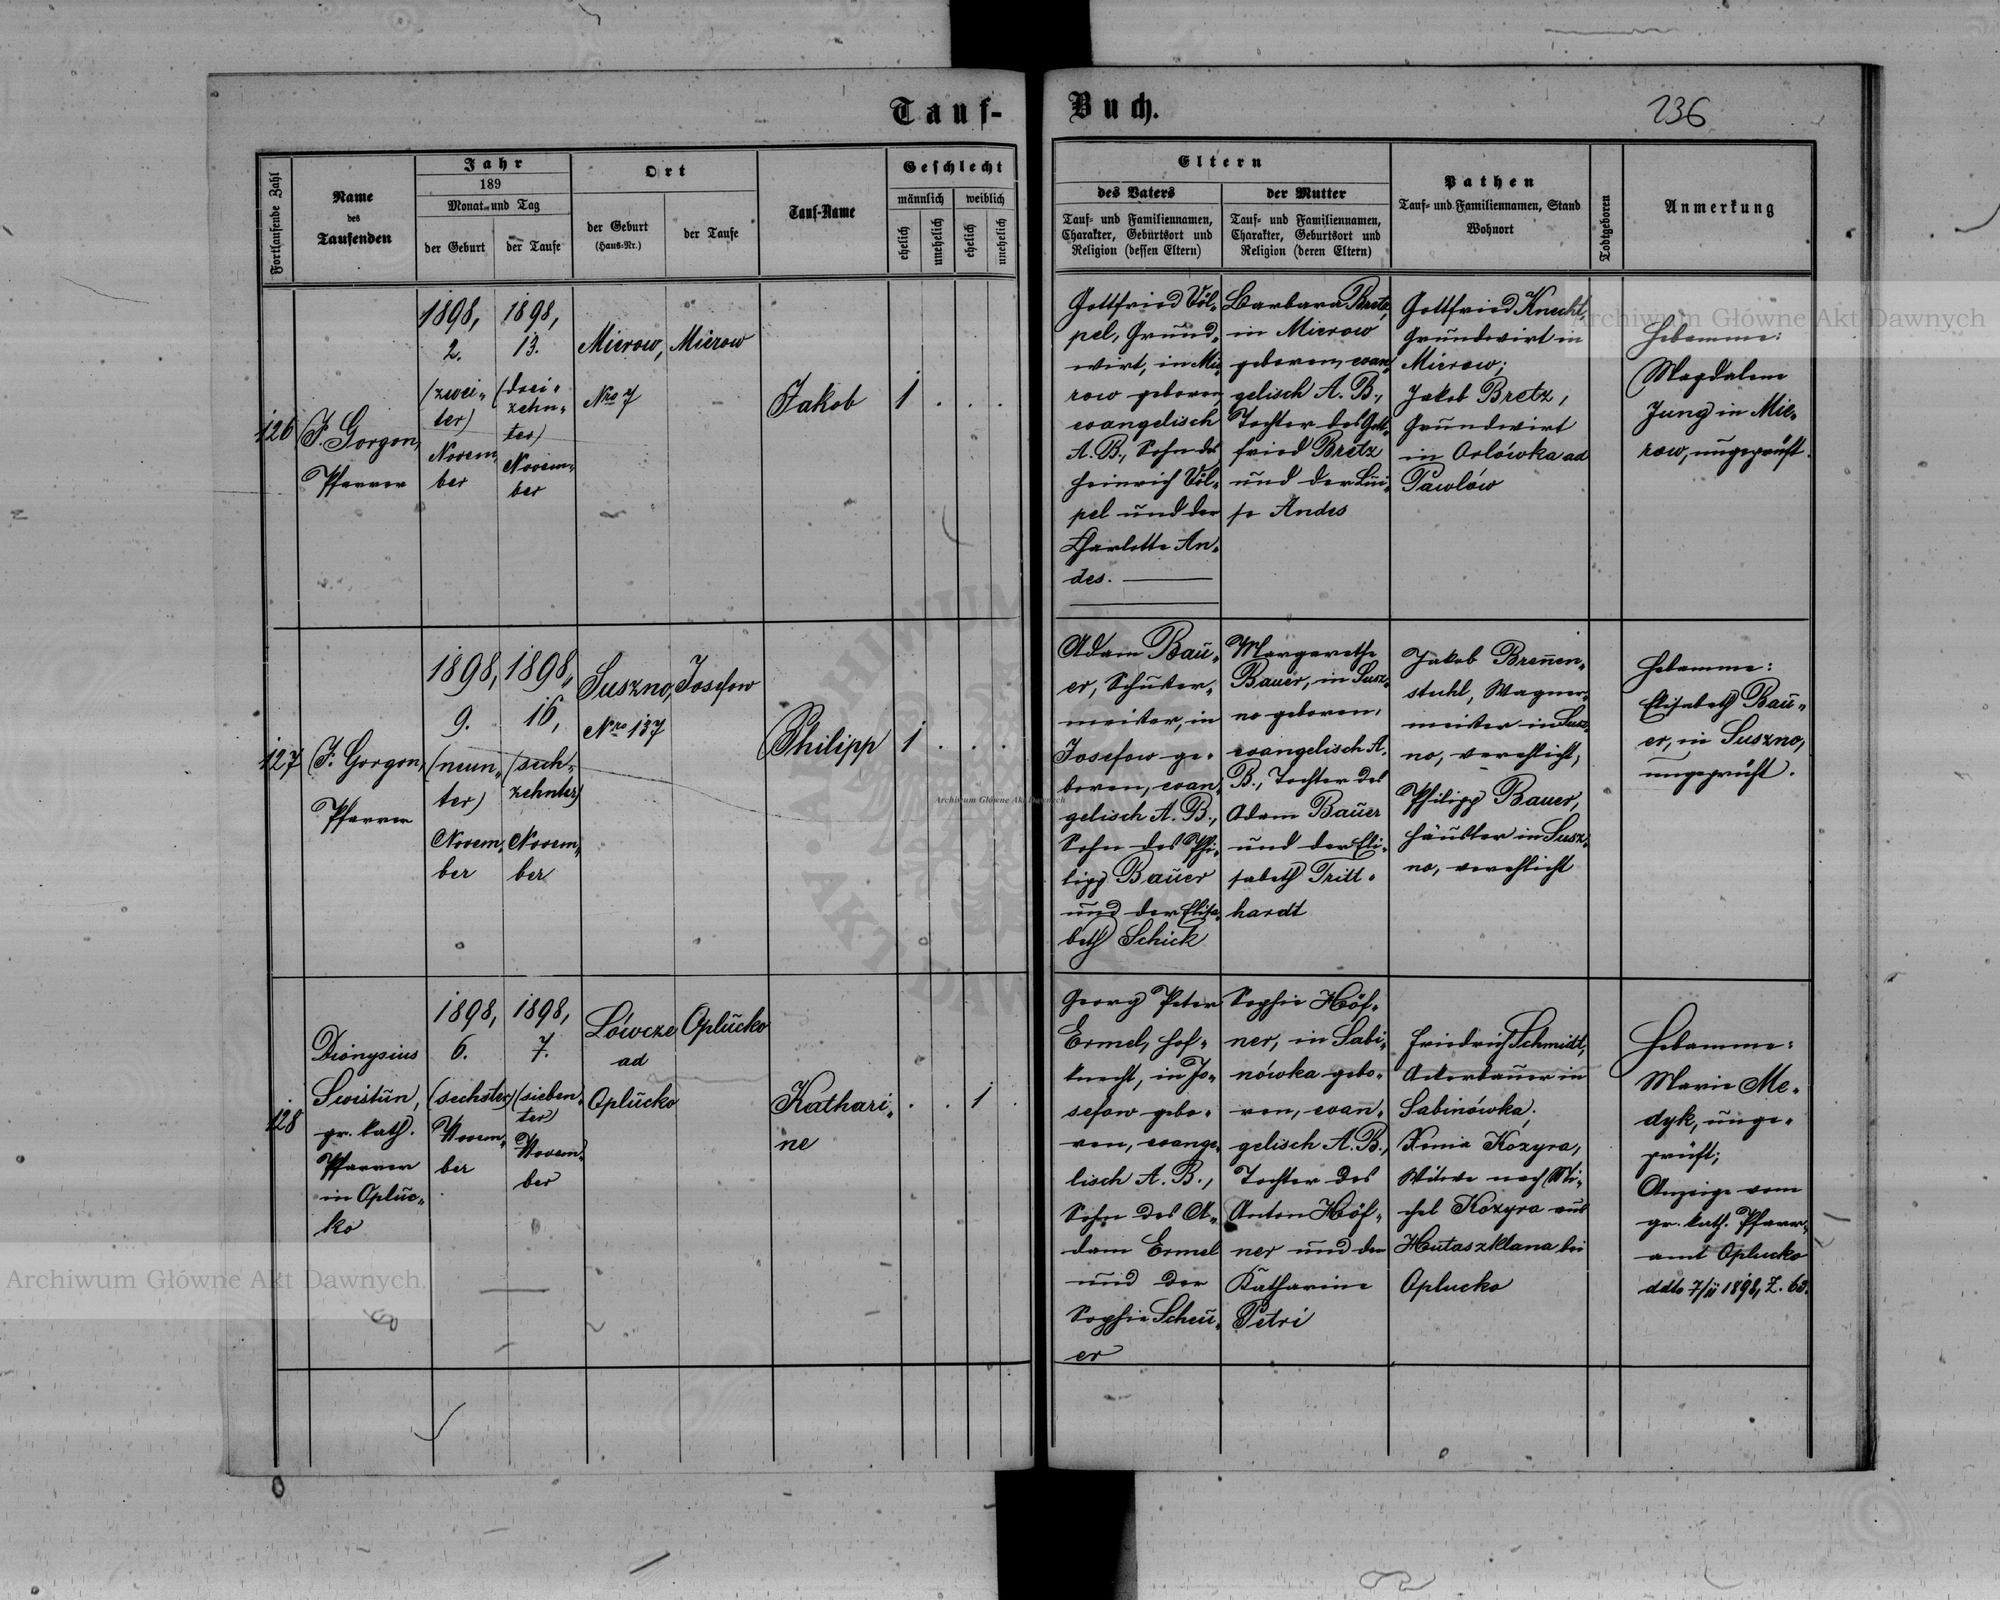 Tauf-
Buch.
236
Fortlaufende Zahl
Name
des
Taufenden
Jahr
189
Monat und Tag
der Geburt
der Taufe
Ort
der Geburt
(Haus-Nr.)
der Taufe
Tauf-Name
Geschlecht
männlich
weiblich
ehelich
unehelich
ehelich
unehelich
Eltern
des Vaters
Tauf- und Familiennamen,
Charakter, Geburtsort und
Religion (dessen Eltern)
der Mutter
Tauf- und Familiennamen,
Charakter, Geburtsort und
Religion (deren Eltern)
Pathen
Tauf- und Familiennamen, Stand
Wohnort
Todtgeboren
Anmerkung
126
J. Gorgon,
Pfarrer
1898,
2.
(zwei-
ter)
Novem-
ber
1898,
13.
(drei-
zehn-
ter)
Novem-
ber
Mierow,
Nro 7
Mierow
Jakob
1 . . .
Gottfried Völ-
pel, Grund-
wirt, in Mie-
row geboren,
evangelisch
A. B., Sohn des
Heinrich Völ-
pel und der
Charlotte An-
des.
Barbara Bretz
in Mierow
geboren, evan-
gelisch A. B.,
Tochter des Gott-
fried Bretz
und der Lui-
se Andes
Gottfried Knecht,
Grundwirt in
Mierow;
Jakob Bretz,
Grundwirt
in Orlówka ad
Pawlów
Hebamme:
Magdalene
Jung in Mie-
row, ungeprüft.
127
J. Gorgon,
Pfarrer
1898,
9.
(neun-
ter)
Novem-
ber
1898,
16,
(sech-
zehnter)
Novem-
ber
Suszno,
Nro 137
Josefow
Philipp
1 . . .
Adam Bau-
er, Schuster-
meister, in
Josefow ge-
boren, evan-
gelisch A. B.,
Sohn des Phi-
lipp Bauer
und der Elisa-
beth Schick
Margarethe
Bauer, in Susz-
no geboren,
evangelisch A.
B., Tochter des
Adam Bauer
und der Eli-
sabeth Tritt-
hardt
Jakob Brennen-
stuhl, Wagner-
meister in Susz-
no, verehlicht;
Philipp Bauer,
Häusler in Susz-
no, verehlicht
Hebamme:
Elisabeth Bau-
er, in Suszno,
ungeprüft.
128
Dionysius
Swistun,
gr. kath.
Pfarrer
in Opluc-
ko
1898,
6.
(sechster)
Novem-
ber
1898,
7.
(sieben-
ter)
Novem-
ber
Lówcze
ad
Oplucko
Oplucko
Kathari-
ne
. . 1 .
Georg Peter
Ermel, Hof-
knecht, in Jo-
sefow gebo-
ren, evange-
lisch A. B.,
Sohn des A-
dam Ermel
und der
Sophie Scheu-
er
Sophie Höf-
ner, in Sabi-
nówka gebo-
ren, evan-
gelisch A. B.,
Tochter des
Anton Höf-
ner und der
Katharine
Petri
Friedrich Schmidt,
Ackerbauer in
Sabinówka;
Xenia Kozyra,
Witwe nach Mi-
chel Kozyra aus
Hutaszklana bei
Oplucko
Hebamme:
Marie Me-
dyk, unge-
prüft;
Anzeige vom
gr. kath. Pfarr-
amt Oplucko
ddto 7/11 1898, Z. 63.
Archiwum Główne Akt Dawnych
Archiwum Główne Akt Dawnych
Archiwum Główne Akt Dawnych.